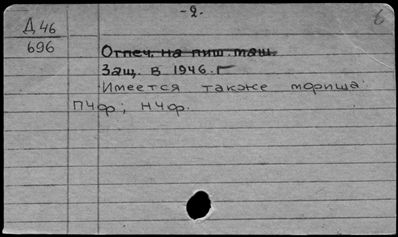 -2.
Д 46
696
Отпеч. на пиш. маш.
Защ. в 1946. г
Имеется также
ПЧф; НЧф.